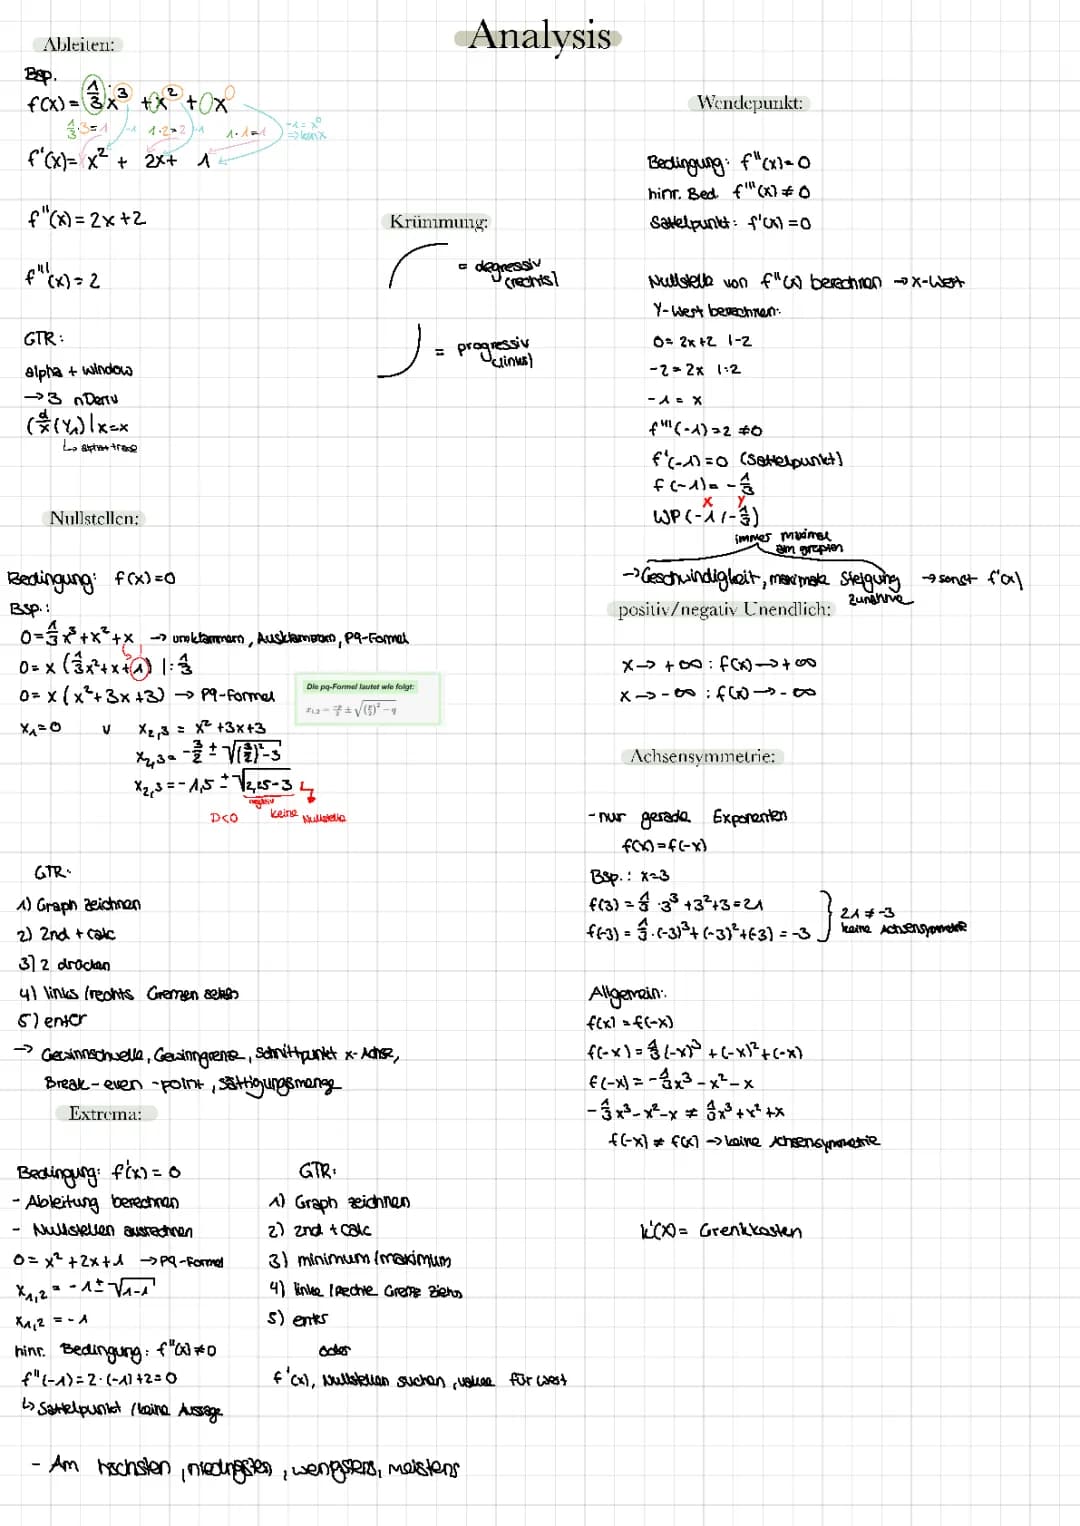 Analysis
Ableiten:
Bsp.
f(x) = 1/3 x³ + x² + 0x⁰
1/3·3=1 -1 1·2=2 -1 1·1=1 -1 = x⁰
=> kein x
f'(x) = x² + 2x + 1
f''(x) = 2x + 2
f'''(x) = 2
GTR:
alpha + window
→ 3 nDeriv
(d/x (Y₁)|x=x
↳ alpha + trace
Krümmung:
= degressiv
(rechts)
= progressiv
(links)
Nullstellen:
Bedingung: f(x)=0
Bsp.:
0 = 1/3 x³ + x² + x → umklammern, Ausklammern, PQ-Formel
0 = x (1/3 x² + x + 1) |: 1/3
0 = x (x² + 3x + 3) → PQ-Formel
Die pq-Formel lautet wie folgt:
x₁,₂ = -p/2 ± √((p/2)² - q
x₁ = 0 v x₂,₃ = x² + 3x + 3
x₂,₃ = -3/2 ± √((3/2)² - 3
x₂,₃ = -1,5 ± √(2,25 - 3
negativ
D<0 keine Nullstelle
GTR:
1) Graph zeichnen
2) 2nd + calc
3) 2 drücken
4) links/rechts Grenzen setzen
5) enter
→ Gewinnschwelle, Gewinngrenze, Schnittpunkt x-Achse,
Break-even-point, Sättigungsmenge
Extrema:
Bedingung: f'(x) = 0
- Ableitung berechnen
- Nullstellen ausrechnen
0 = x² + 2x + 1 → PQ-Formel
x₁,₂ = -1 ± √(1-1
x₁,₂ = -1
hinr. Bedingung: f''(x) ≠ 0
f''(-1) = 2·(-1) + 2 = 0
↳ Sattelpunkt / keine Aussage
GTR:
1) Graph zeichnen
2) 2nd + calc
3) minimum/maximum
4) linke / rechte Grenze ziehen
5) enter
oder
f'(x), Nullstellen suchen, value für Wert
- Am höchsten, niedrigsten, wenigsten, meistens
Wendepunkt:
Bedingung: f''(x) = 0
hinr. Bed. f'''(x) ≠ 0
Sattelpunkt: f'(x) = 0
Nullstelle von f''(x) berechnen → x-Wert
Y-Wert berechnen:
0 = 2x + 2 |-2
-2 = 2x |:2
-1 = x
f'''(-1) = 2 ≠ 0
f'(-1) = 0 (Sattelpunkt)
f(-1) = -1/3
x y
WP(-1 / -1/3)
immer maximal
am graphen
→ Geschwindigkeit, maximale Steigung → sonst f'(x)
Zunahme
positiv/negativ Unendlich:
x → +∞ : f(x) → +∞
x → -∞ : f(x) → -∞
Achsensymmetrie:
- nur gerade Exponenten
f(x) = f(-x)
Bsp.: x=3
f(3) = 1/3 · 3³ + 3² + 3 = 21
f(-3) = 1/3 · (-3)³ + (-3)² + (-3) = -3
21 ≠ -3
keine Achsensymmetrie
Allgemein:
f(x) = f(-x)
f(-x) = 1/3 (-x)³ + (-x)² + (-x)
f(-x) = -1/3 x³ - x² - x
-1/3 x³ - x² - x ≠ 1/3 x³ + x² + x
f(-x) ≠ f(x) → keine Achsensymmetrie
k'(x) = Grenkkosten